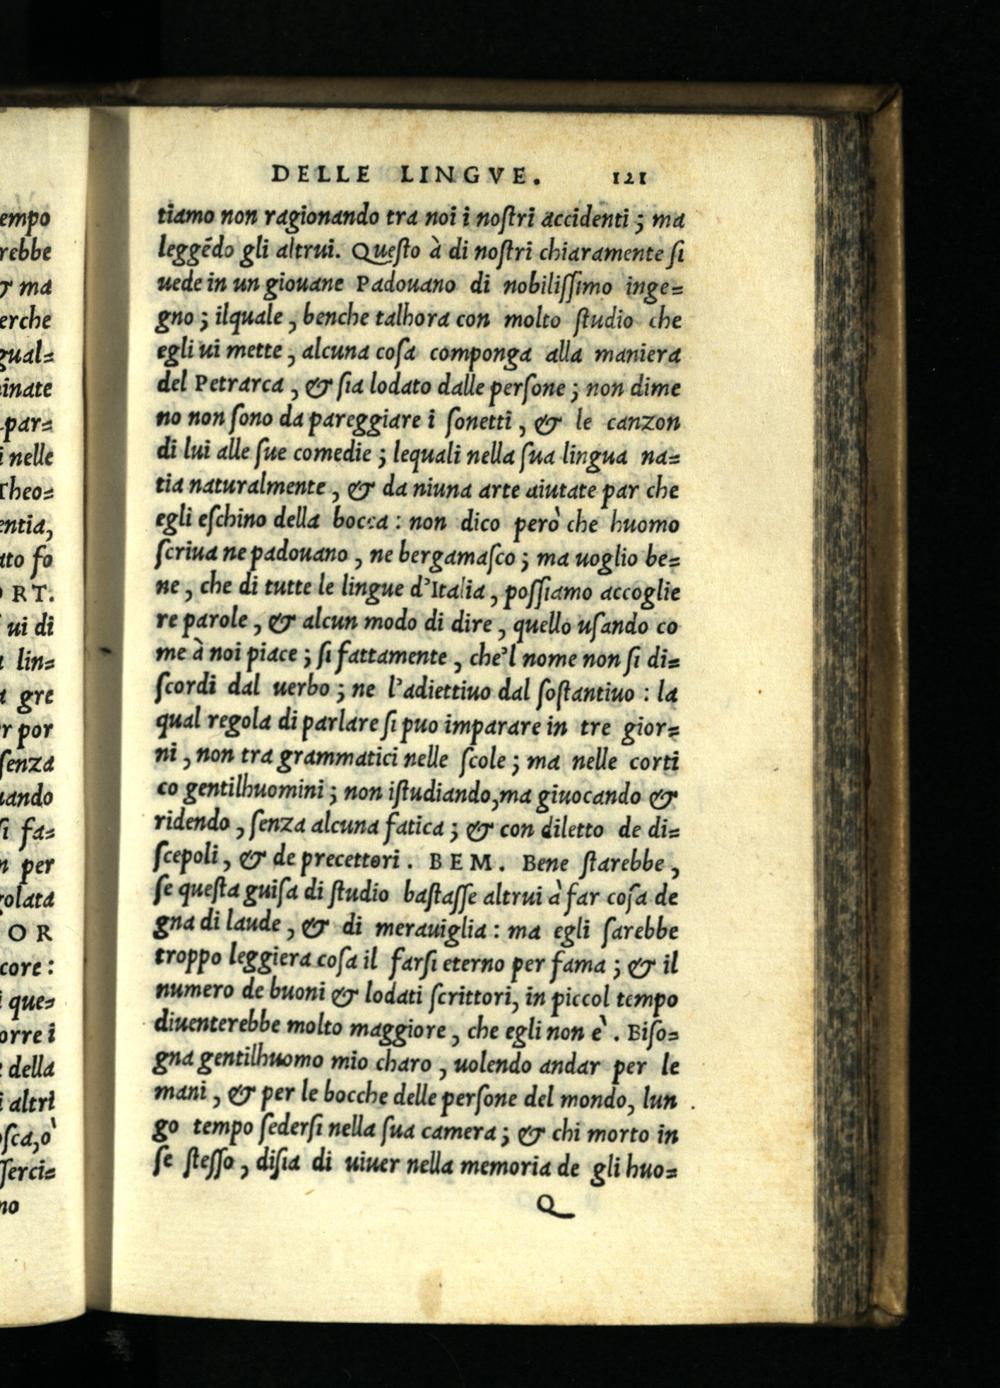 DELLE LINGVE. 121
tiamo non ragionando tra noi i noſtri accidenti ; ma
leggẽdo gli altrui. Queſto à di noſtri chiaramente ſi
uede in un giouane Padouano di nobiliſſimo inge=
gno ; ilquale , benche talhora con molto ſtudio che
egli ui mette , alcuna coſa componga alla maniera
del Petrarca , & ſia lodato dalle perſone ; non dime
no non ſono da pareggiare i ſonetti , & le canzon
di lui alle ſue comedie ; lequali nella ſua lingua na=
tia naturalmente , & da niuna arte aiutate par che
egli eſchino della bocca : non dico però che huomo
ſcriua ne padouano , ne bergamaſco ; ma uoglio be=
ne , che di tutte le lingue d'Italia , poſſiamo accoglie
re parole , & alcun modo di dire , quello uſando co
me à noi piace ; ſi fattamente , che'l nome non ſi di=
ſcordi dal uerbo ; ne l'adiettiuo dal ſoſtantiuo : la
qual regola di parlare ſi puo imparare in tre gior=
ni , non tra grammatici nelle ſcole ; ma nelle corti
co gentilhuomini ; non iſtudiando,ma giuocando &
ridendo , ſenza alcuna fatica ; & con diletto de di=
ſcepoli , & de precettori . BEM. Bene ſtarebbe ,
ſe queſta guiſa di ſtudio baſtaſſe altrui à far coſa de
gna di laude , & di merauiglia : ma egli ſarebbe
troppo leggiera coſa il farſi eterno per fama ; & il
numero de buoni & lodati ſcrittori, in piccol tempo
diuenterebbe molto maggiore , che egli non è . Biſo=
gna gentilhuomo mio charo , uolendo andar per le
mani , & per le bocche delle perſone del mondo, lun
go tempo ſederſi nella ſua camera ; & chi morto in
ſe ſteſſo , diſia di uiuer nella memoria de gli huo=
Q
empo
rebbe
& ma
erche
gual=
inate
par=
i nelle
Theo=
entia,
ato ſo
ORT.
ui di
lin=
gre
r por
ſenza
uando
ſi fa=
n per
golata
OR
core :
i que=
orre i
della
i altri
oſca,ò
ſſerci=
no